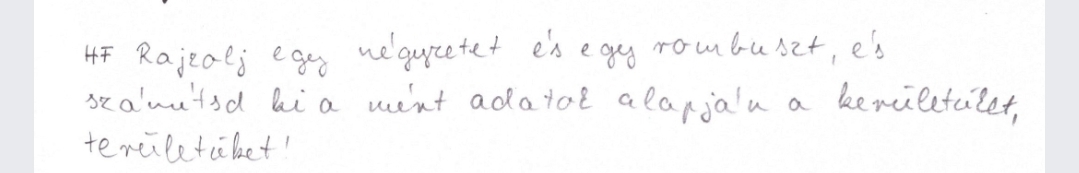 HF Rajzolj egy négyzetet és egy rombuszt, és
számítsd ki a mért adatok alapján a kerületüket,
területüket!